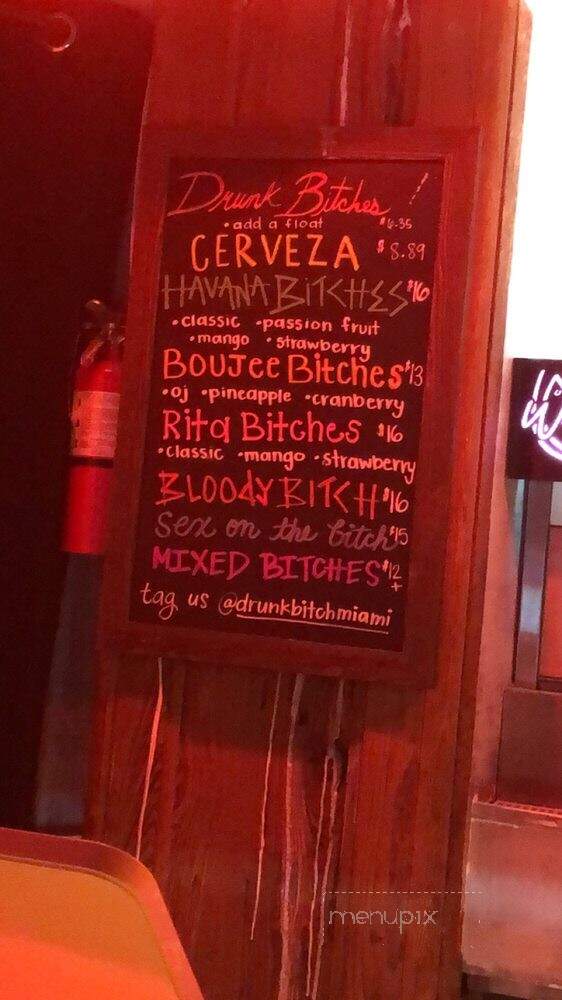 Drunk Bitches!
• add a float $6.35
CERVEZA $8.89
HAVANA BITCHES $16
• classic • passion fruit
• mango • strawberry
Boujee Bitches $13
• oj • pineapple • cranberry
Rita Bitches $16
• classic • mango • strawberry
BLOODY BITCH $16
Sex on the bitch $15
MIXED BITCHES $12+
tag us @drunkbitchmiami
menupix